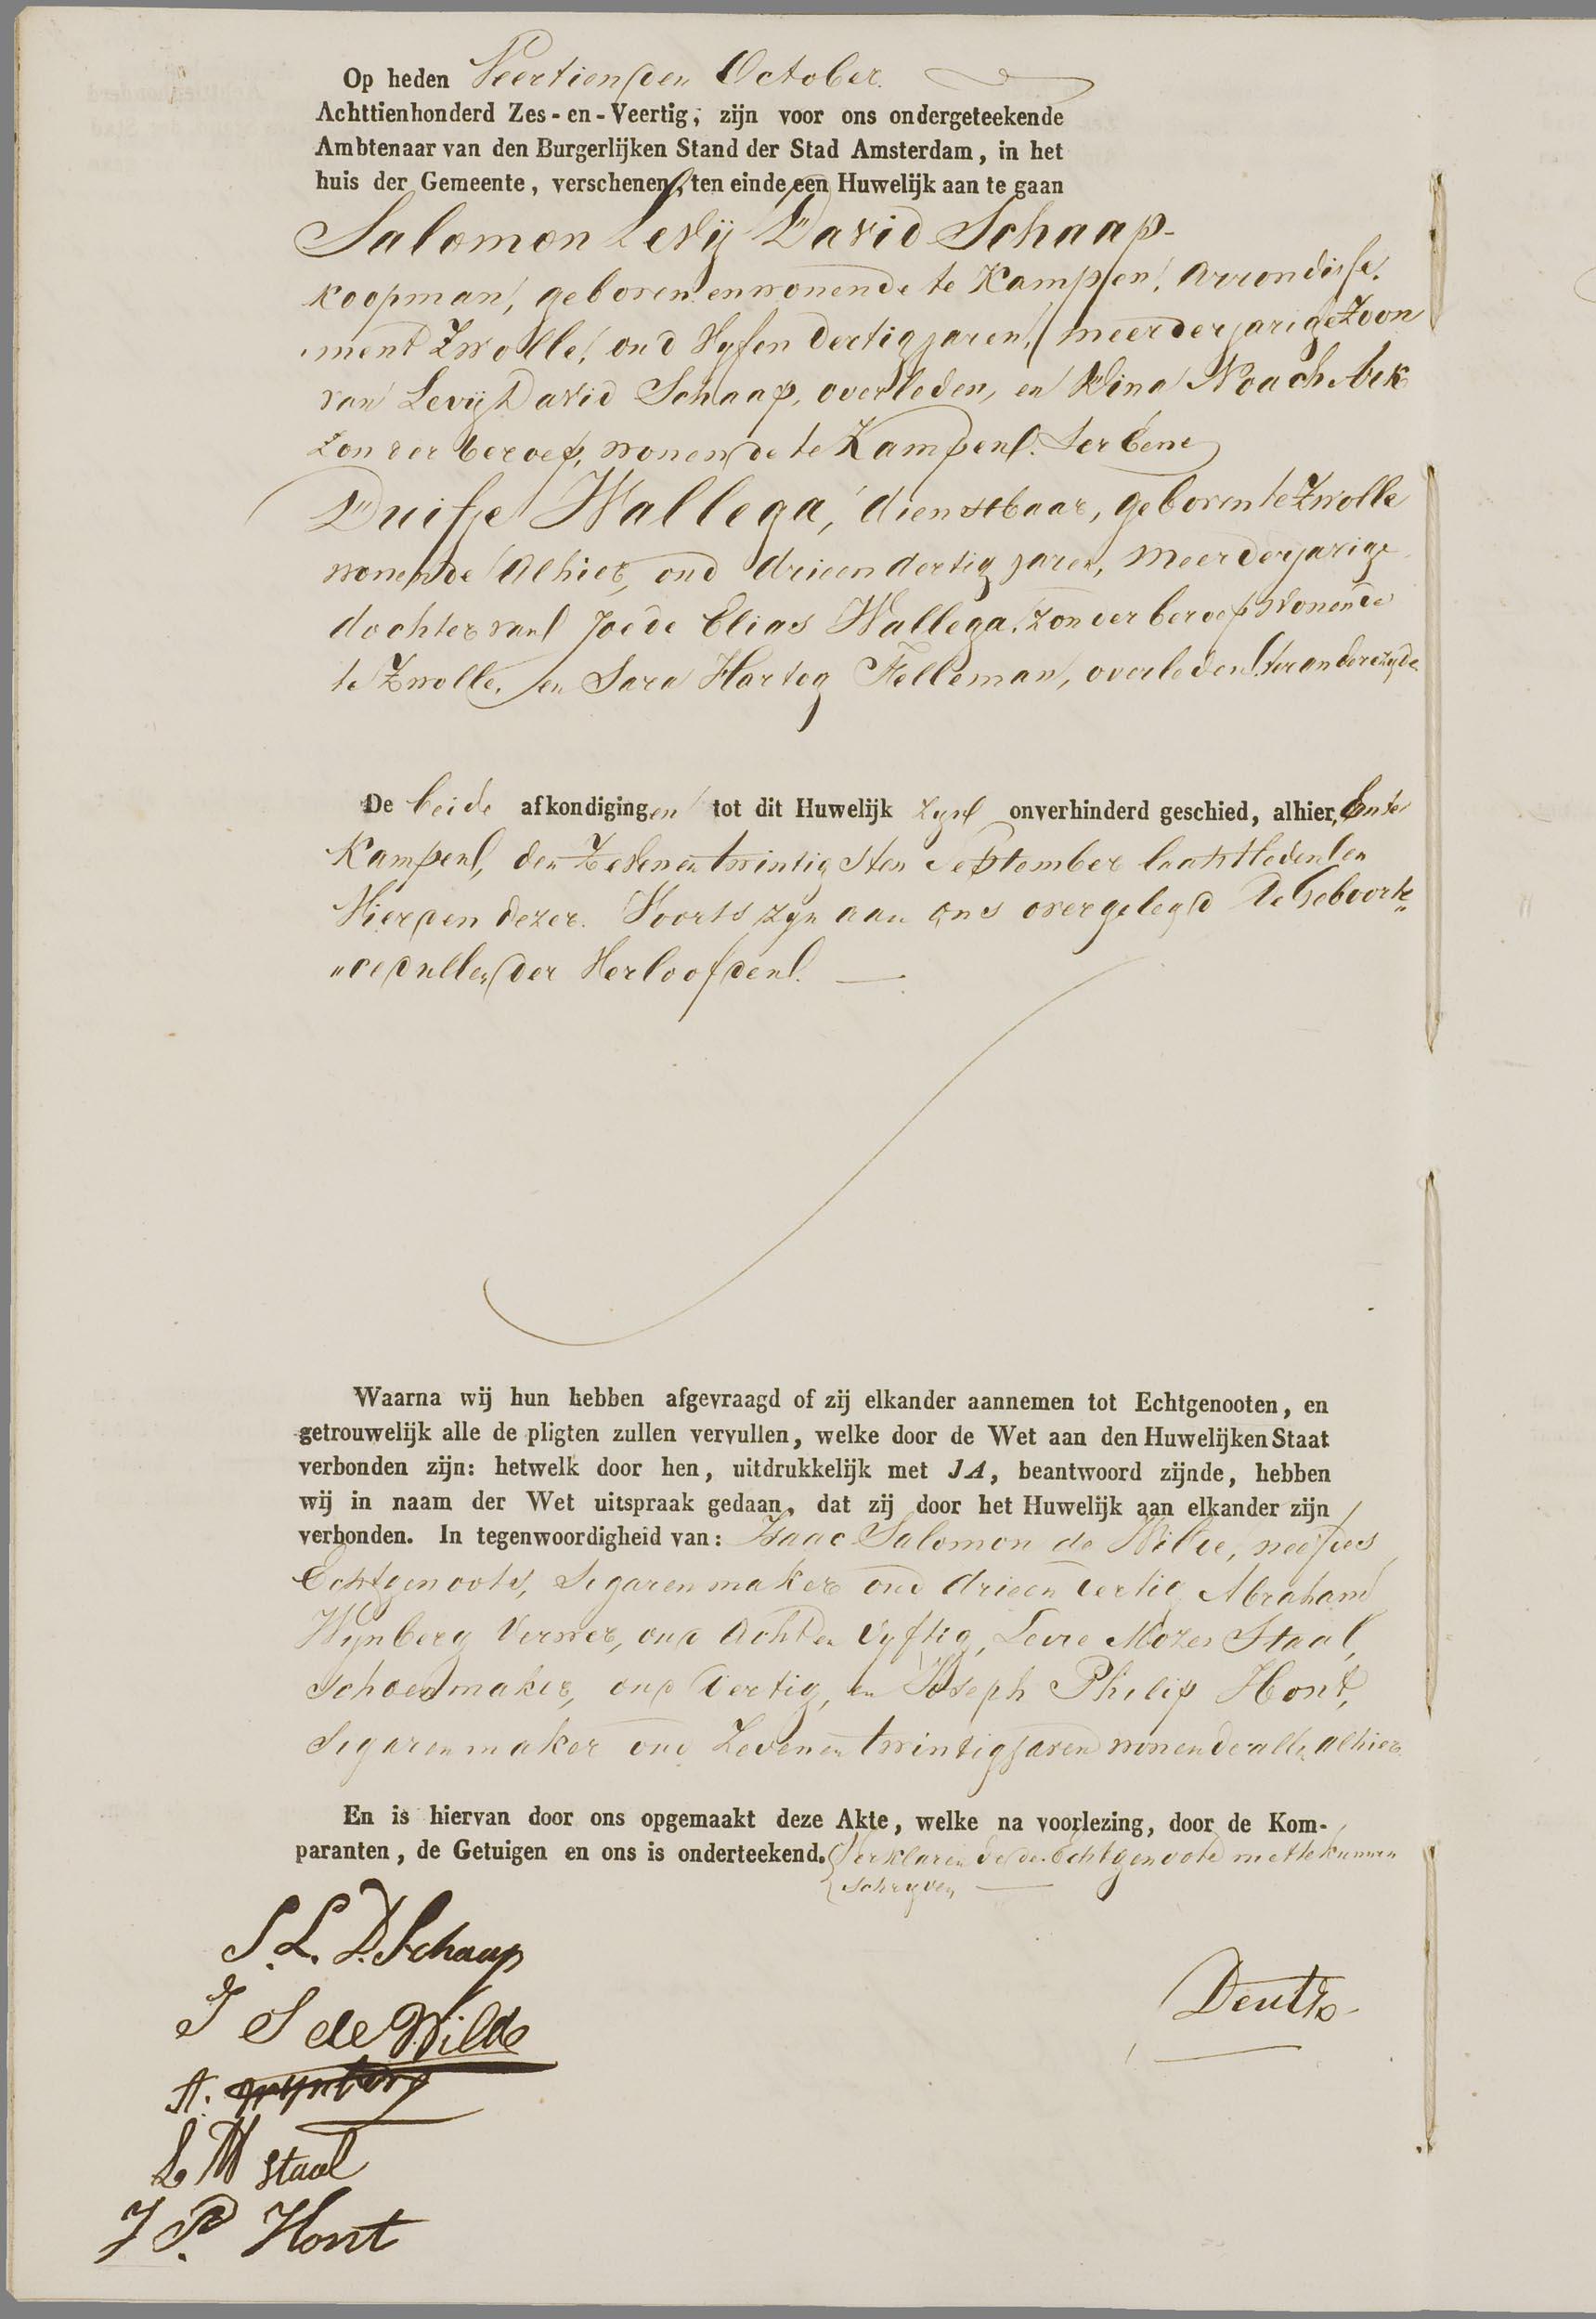 Op heden Veertienden October.
Achttienhonderd Zes-en-Veertig, zijn voor ons ondergeteekende
Ambtenaar van den Burgerlijken Stand der Stad Amsterdam, in het
huis der Gemeente, verschenen, ten einde een Huwelijk aan te gaan
Salomon Levij David Schaap-
koopman, geboren en wonende te Kampen, Arrondisse.
ment Zwolle, oud Vyfen dertig jaren, meerderjarige Zoon
van Levij David Schaap, overleden, en Dina Noach
zonder beroep, wonende te Kampen. ter eene
Duifje Wallega, dienstbaar, geboren te Zwolle
wonende Alhier, oud drieendertig jaren, meerderjarige
dochter van Joede Elias Wallega, zonder beroep wonende
te Zwolle, en Sara Hartog Felleman, overleden, ter anderezyde
De beide afkondigingen tot dit Huwelijk zyn onverhinderd geschied, alhier, en te
Kampen, den Zevenentwintigsten September laatstleden en
Vierden dezer. Voorts zyn aan ons overgelegd De Geboorte„
„cedullen der Verloofden. —
Waarna wij hun hebben afgevraagd of zij elkander aannemen tot Echtgenooten, en
getrouwelijk alle de pligten zullen vervullen, welke door de Wet aan den Huwelijken Staat
verbonden zijn: hetwelk door hen, uitdrukkelijk met JA, beantwoord zijnde, hebben
wij in naam der Wet uitspraak gedaan, dat zij door het Huwelijk aan elkander zijn
verbonden. In tegenwoordigheid van: Isaac Salomon de Wilde, neef des
Echtgenoots, Segarenmaker oud drieendertig, Abraham
Wynberg Verwer, oud Achten Vyftig, Levie Mozes Staal,
Schoenmaker, oud dertig, en Joseph Philip Hont,
Segarenmaker oud Zevenentwintig jaren wonende allen alhier.
En is hiervan door ons opgemaakt deze Akte, welke na voorlezing, door de Kom-
paranten, de Getuigen en ons is onderteekend. Verklarende de Echtgenoote niet te kunnen
schryven —
S. L. D. Schaap
J S de Wilde
A. Wynberg
L M Staal
J P. Hont